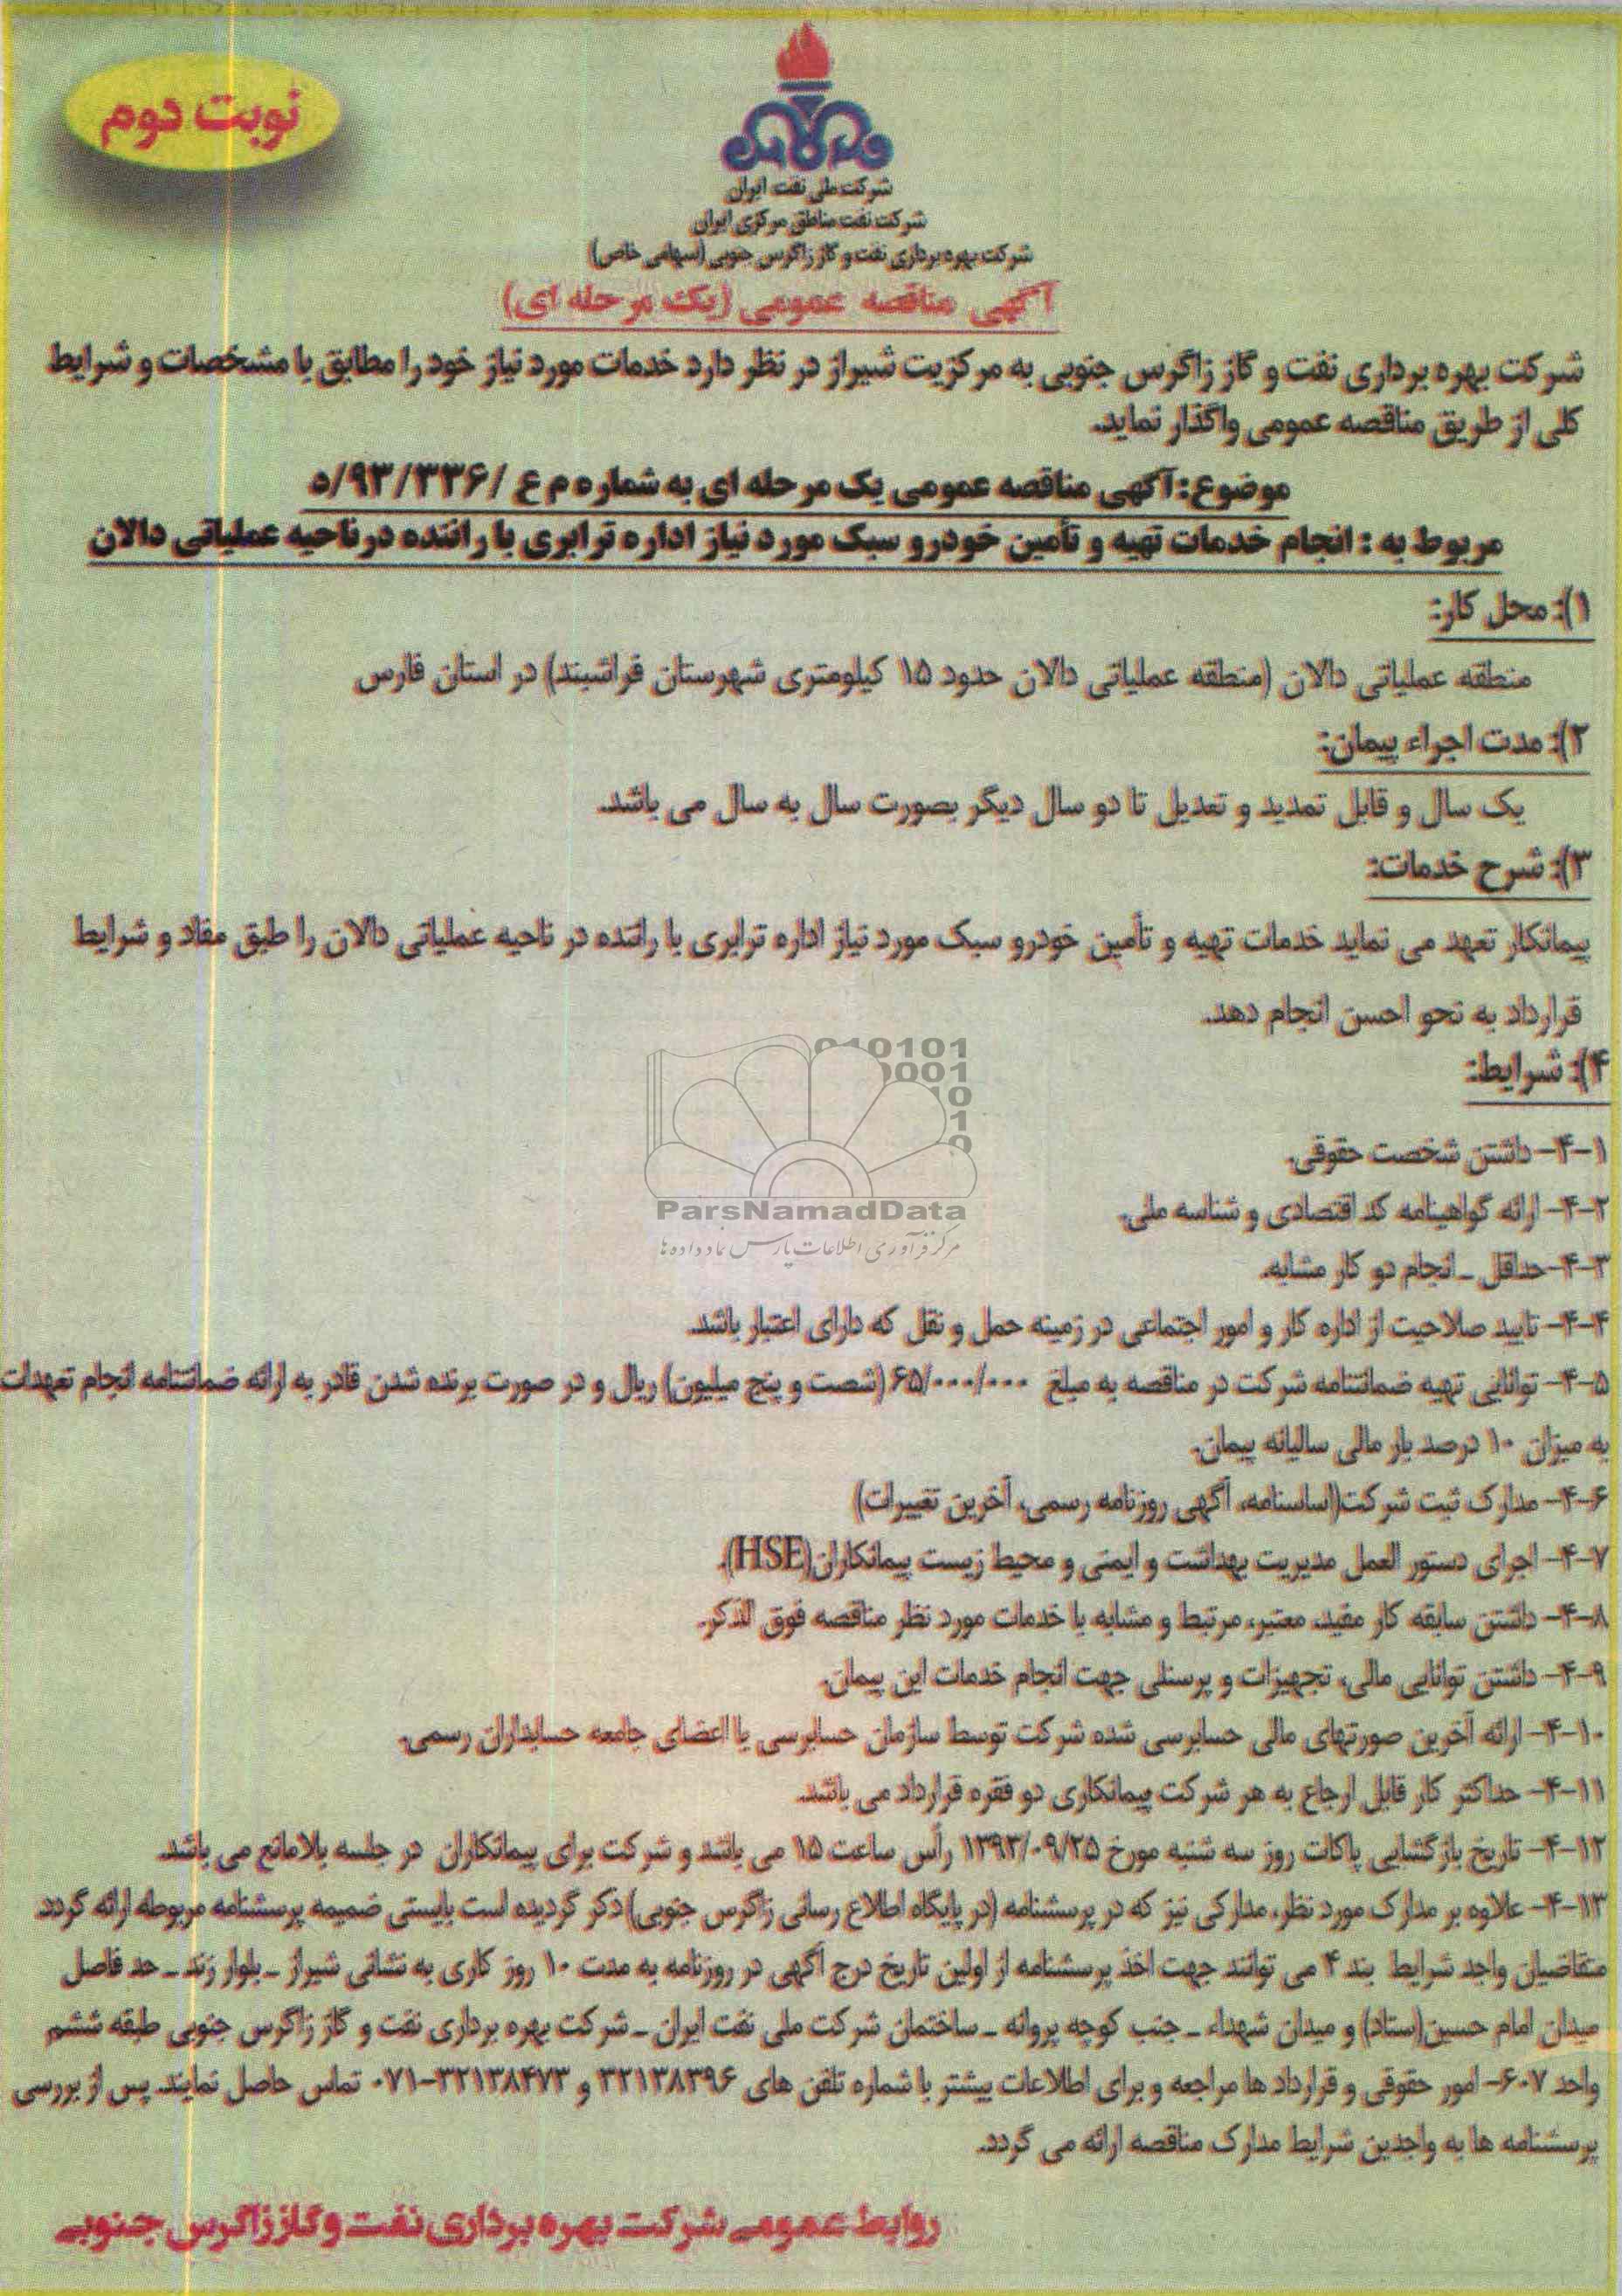 نوبت دوم
شرکت ملی نفت ایران
شرکت نفت مناطق مرکزی ایران
شرکت بهره برداری نفت و گاز زاگرس جنوبی (سهامی خاص)
آگهی مناقصه عمومی (یک مرحله ای)
شرکت بهره برداری نفت و گاز زاگرس جنوبی به مرکزیت شیراز در نظر دارد خدمات مورد نیاز خود را مطابق با مشخصات و شرایط
کلی از طریق مناقصه عمومی واگذار نماید.
موضوع: آگهی مناقصه عمومی یک مرحله ای به شماره م ع /۵/۹۳/۳۳۶
مربوط به : انجام خدمات تهیه و تأمین خودرو سبک مورد نیاز اداره ترابری با راننده در ناحیه عملیاتی دالان
۱): محل کار:
منطقه عملیاتی دالان (منطقه عملیاتی دالان حدود ۱۵ کیلومتری شهرستان فراشبند) در استان فارس
۲): مدت اجراء پیمان:
یک سال و قابل تمدید و تعدیل تا دو سال دیگر بصورت سال به سال می باشد.
۳): شرح خدمات:
پیمانکار تعهد می نماید خدمات تهیه و تأمین خودرو سبک مورد نیاز اداره ترابری با راننده در ناحیه عملیاتی دالان را طبق مفاد و شرایط
قرارداد به نحو احسن انجام دهد.
۴): شرایط:
۴-۱- داشتن شخصت حقوقی.
۴-۲- ارائه گواهینامه کد اقتصادی و شناسه ملی.
۴-۳- حداقل - انجام دو کار مشابه.
۴-۴- تایید صلاحیت از اداره کار و امور اجتماعی در زمینه حمل و نقل که دارای اعتبار باشد.
۴-۵- توانایی تهیه ضمانتنامه شرکت در مناقصه به مبلغ ۶۵/۰۰۰/۰۰۰ (شصت و پنج میلیون) ریال و در صورت برنده شدن قادر به ارائه ضمانتنامه انجام تعهدات
به میزان ۱۰ درصد بار مالی سالیانه پیمان.
۴-۶- مدارک ثبت شرکت(اساسنامه، آگهی روزنامه رسمی، آخرین تغییرات)
۴-۷- اجرای دستور العمل مدیریت بهداشت و ایمنی و محیط زیست پیمانکاران(HSE).
۴-۸- داشتن سابقه کار مفید، معتبر، مرتبط و مشابه با خدمات مورد نظر مناقصه فوق الذکر.
۴-۹- داشتن توانایی مالی، تجهیزات و پرسنلی جهت انجام خدمات این پیمان.
۴-۱۰- ارائه آخرین صورتهای مالی حسابرسی شده شرکت توسط سازمان حسابرسی یا اعضای جامعه حسابداران رسمی.
۴-۱۱- حداکثر کار قابل ارجاع به هر شرکت پیمانکاری دو فقره قرارداد می باشد.
۴-۱۲- تاریخ بازگشایی پاکات روز سه شنبه مورخ ۱۳۹۳/۰۹/۲۵ رأس ساعت ۱۵ می باشد و شرکت برای پیمانکاران در جلسه بلامانع می باشد.
۴-۱۳- علاوه بر مدارک مورد نظر، مدارکی نیز که در پرسشنامه (در پایگاه اطلاع رسانی زاگرس جنوبی) ذکر گردیده است بایستی ضمیمه پرسشنامه مربوطه ارائه گردد
متقاضیان واجد شرایط بند ۴ می توانند جهت اخذ پرسشنامه از اولین تاریخ درج آگهی در روزنامه به مدت ۱۰ روز کاری به نشانی شیراز - بلوار زند - حد فاصل
میدان امام حسین(ستاد) و میدان شهداء - جنب کوچه پروانه - ساختمان شرکت ملی نفت ایران - شرکت بهره برداری نفت و گاز زاگرس جنوبی طبقه ششم
واحد ۶۰۷- امور حقوقی و قرارداد ها مراجعه و برای اطلاعات بیشتر با شماره تلفن های ۳۲۱۳۸۳۹۶ و ۳۲۱۳۸۴۷۳-۰۷۱ تماس حاصل نمایند. پس از بررسی
پرسشنامه ها به واجدین شرایط مدارک مناقصه ارائه می گردد.
روابط عمومی شرکت بهره برداری نفت و گاز زاگرس جنوبی
ParsNamadData
مرکز فرآوری اطلاعات پارس نماد داده ها